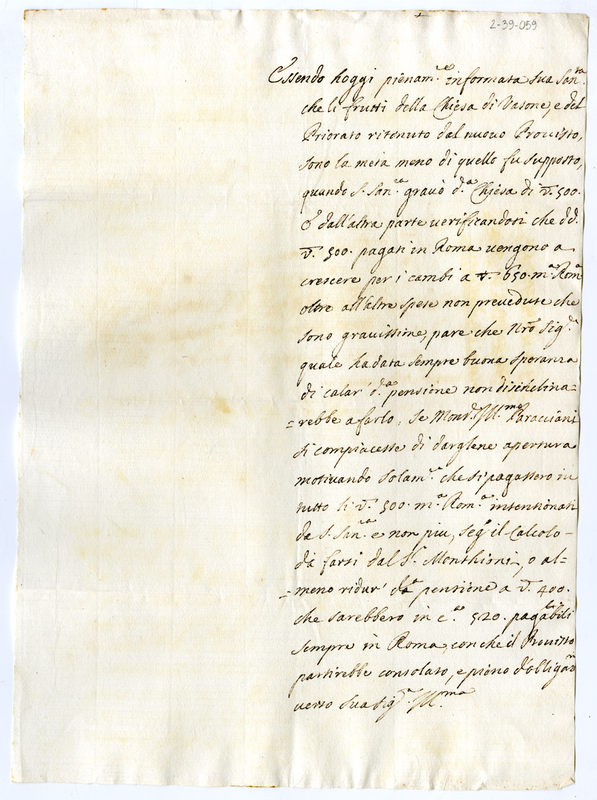 2-39-059
Essendo hoggi pienam.te informata sua San.ta
che li frutti della Chiesa di Vasone, e del
Priorato ritenuto dal nuovo Provisto,
sono la metà meno di quello fu supposto,
quando S. San.tà gravò d.a Chiesa di ∇. 500.
E dall'altra parte verificandosi che dd.
∇. 500. pagati in Roma vengono a
crescere per i cambi a ∇. 650. m.a Rom.a
oltre all'altre spese non prevedute che
sono gravissime, pare che N.ro Sig.re
quale ha data sempre buona speranza
di calar' d.a pensione non disinclina=
=rebbe a farlo, se Mons.r Ill.mo Paracciani
si compiacesse di dargliene apertura
motivando solam.te che si pagassero in
tutto li ∇. 500. m.a Rom.a intentionati
da S. San.tà e non più, seg.o il Calcolo
da farsi dal S.r Monthioni, o al=
=meno ridur' d.a pensione a ∇. 400.
che sarebbero in c.a 520. pagabili
sempre in Roma, con che il Provisto
partirebbe consolato, e pieno d'obligaz.ni
verso sua Sig.a Ill.ma